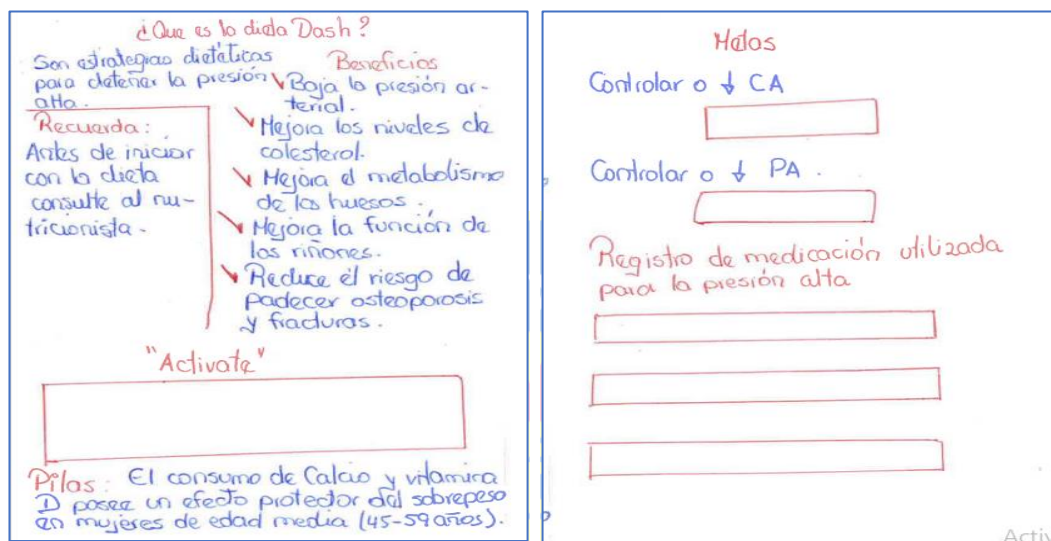 ¿Que es la dieta Dash?
Son estrategias dietéticas
para detener la presión
alta.
Recuerda:
Antes de iniciar
con la dieta
consulte al nu-
tricionista.
Beneficios
Baja la presión ar-
terial.
Mejora los niveles de
colesterol.
Mejora el metabolismo
de los huesos.
Mejora la función de
los riñones.
Reduce el riesgo de
padecer osteoporosis
y fracturas.
"Activate"
Pilas: El consumo de Calcio y vitamina
D posee un efecto protector del sobrepeso
en mujeres de edad media (45-59 años).
Metas
Controlar o ↓ CA
Controlar o ↓ PA.
Registro de medicación utilizada
para la presión alta
Activ